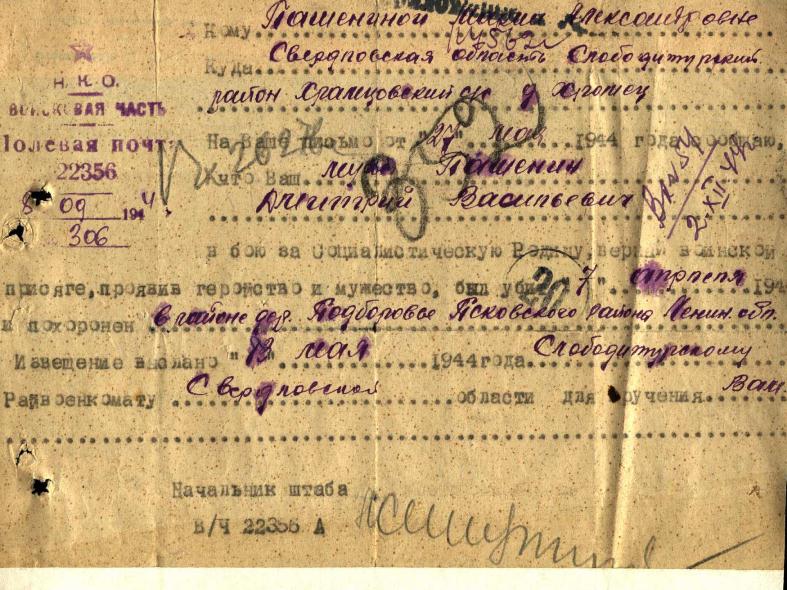 Кому Пашениной Марии Александровне
Куда Свердловская область Слободотурский
район Храмцовский с/с д. Хромец
Н.К.О.
ВОЙСКОВАЯ ЧАСТЬ
Полевая почта
22356
8 09 1944
306
На Ваше письмо от "27" мая 1944 года сообщаю,
что Ваш муж Пашенин
Дмитрий Васильевич
2.XII.44
в бою за Социалистическую Родину, верный воинской
присяге, проявив геройство и мужество, был убит "7" апреля 194
и похоронен в районе дер. Подборовье Псковского района Ленин. обл.
Извещение выслано "13" мая 1944 года Слободотурскому
Райвоенкомату Свердловской области для вручения Вам
Начальник штаба
В/Ч 22356 А